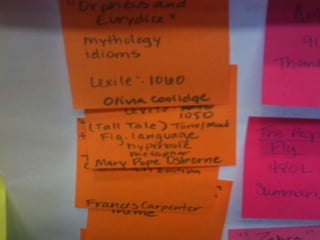 "Orpheus and
Eurydice"
mythology
idioms
Lexile: 1060
Olivia Coolidge
1050
(Tall Tale) Tone/Mood
Fig. language
hyperbole
metaphor
Mary Pope Osborne
Frances Carpenter
theme
91
Thom
The Peop
Fly
480L
Summari
"Zebra"